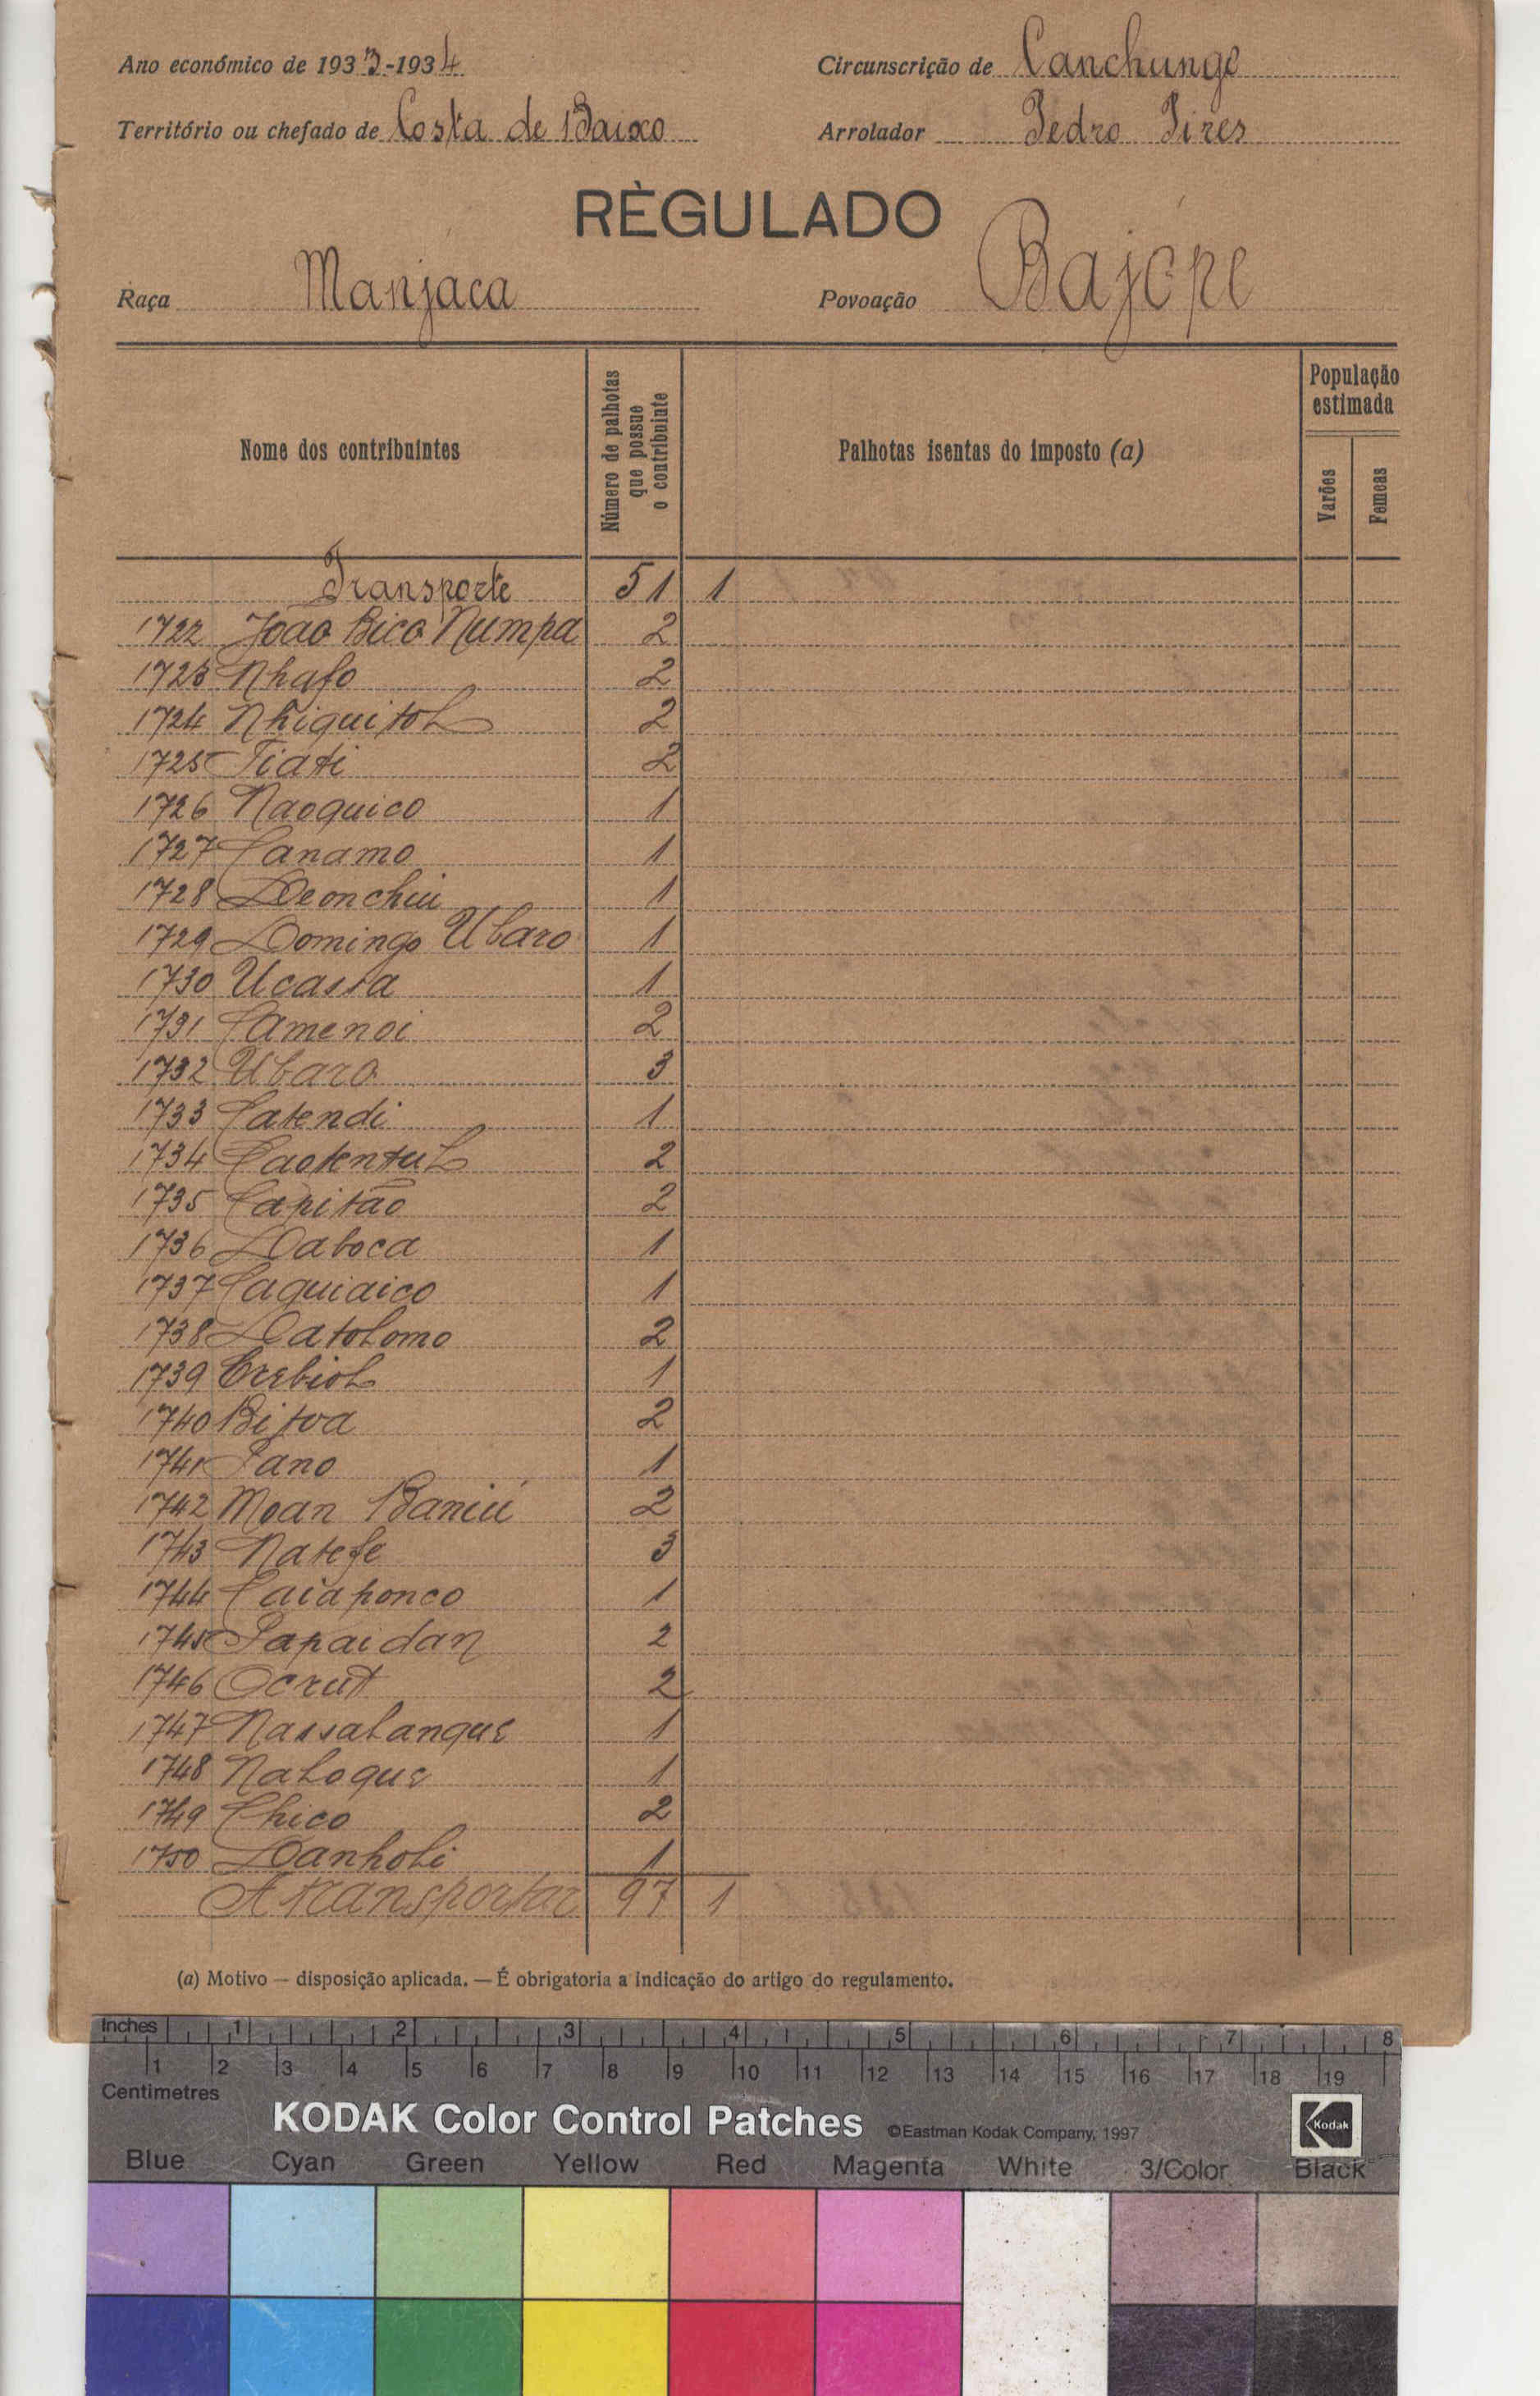 Ano económico de 1933-1934 Circunscrição de Canchungo
Território ou chefado de Costa de Baixo Arrolador Pedro Pires
RÈGULADO
Raça Manjaca Povoação Bajópe
Nome dos contribuintes
Número de palhotas que possue o contribuinte
Palhotas isentas do imposto (a)
População estimada
Varões
Femeas
Transporte 51 1
1722 João Bico Numpa 2
1723 Nhafo 2
1724 Nhiquitol 2
1725 Tiati 2
1726 Naoquico 1
1727 Canamo 1
1728 Deonchui 1
1729 Domingo Ubaro 1
1730 Ucassa 1
1731 Camenoi 2
1732 Ubaro 3
1733 Catendi 1
1734 Caotentul 2
1735 Capitão 2
1736 Daboca 1
1737 Caguiaico 1
1738 Datolomo 2
1739 Crebiol 1
1740 Bitoa 2
1741 Pano 1
1742 Moan Baniú 2
1743 Natefe 3
1744 Caiaponco 1
1745 Papaidan 2
1746 Ocrut 2
1747 Nassalanque 1
1748 Naloque 1
1749 Chico 2
1750 Danholi 1
A transportar 97 1
(a) Motivo — disposição aplicada. — É obrigatoria a indicação do artigo do regulamento.
Inches 1 2 3 4 5 6 7 8
1 2 3 4 5 6 7 8 9 10 11 12 13 14 15 16 17 18 19
Centimetres
KODAK Color Control Patches ©Eastman Kodak Company, 1997 Kodak
Blue Cyan Green Yellow Red Magenta White 3/Color Black